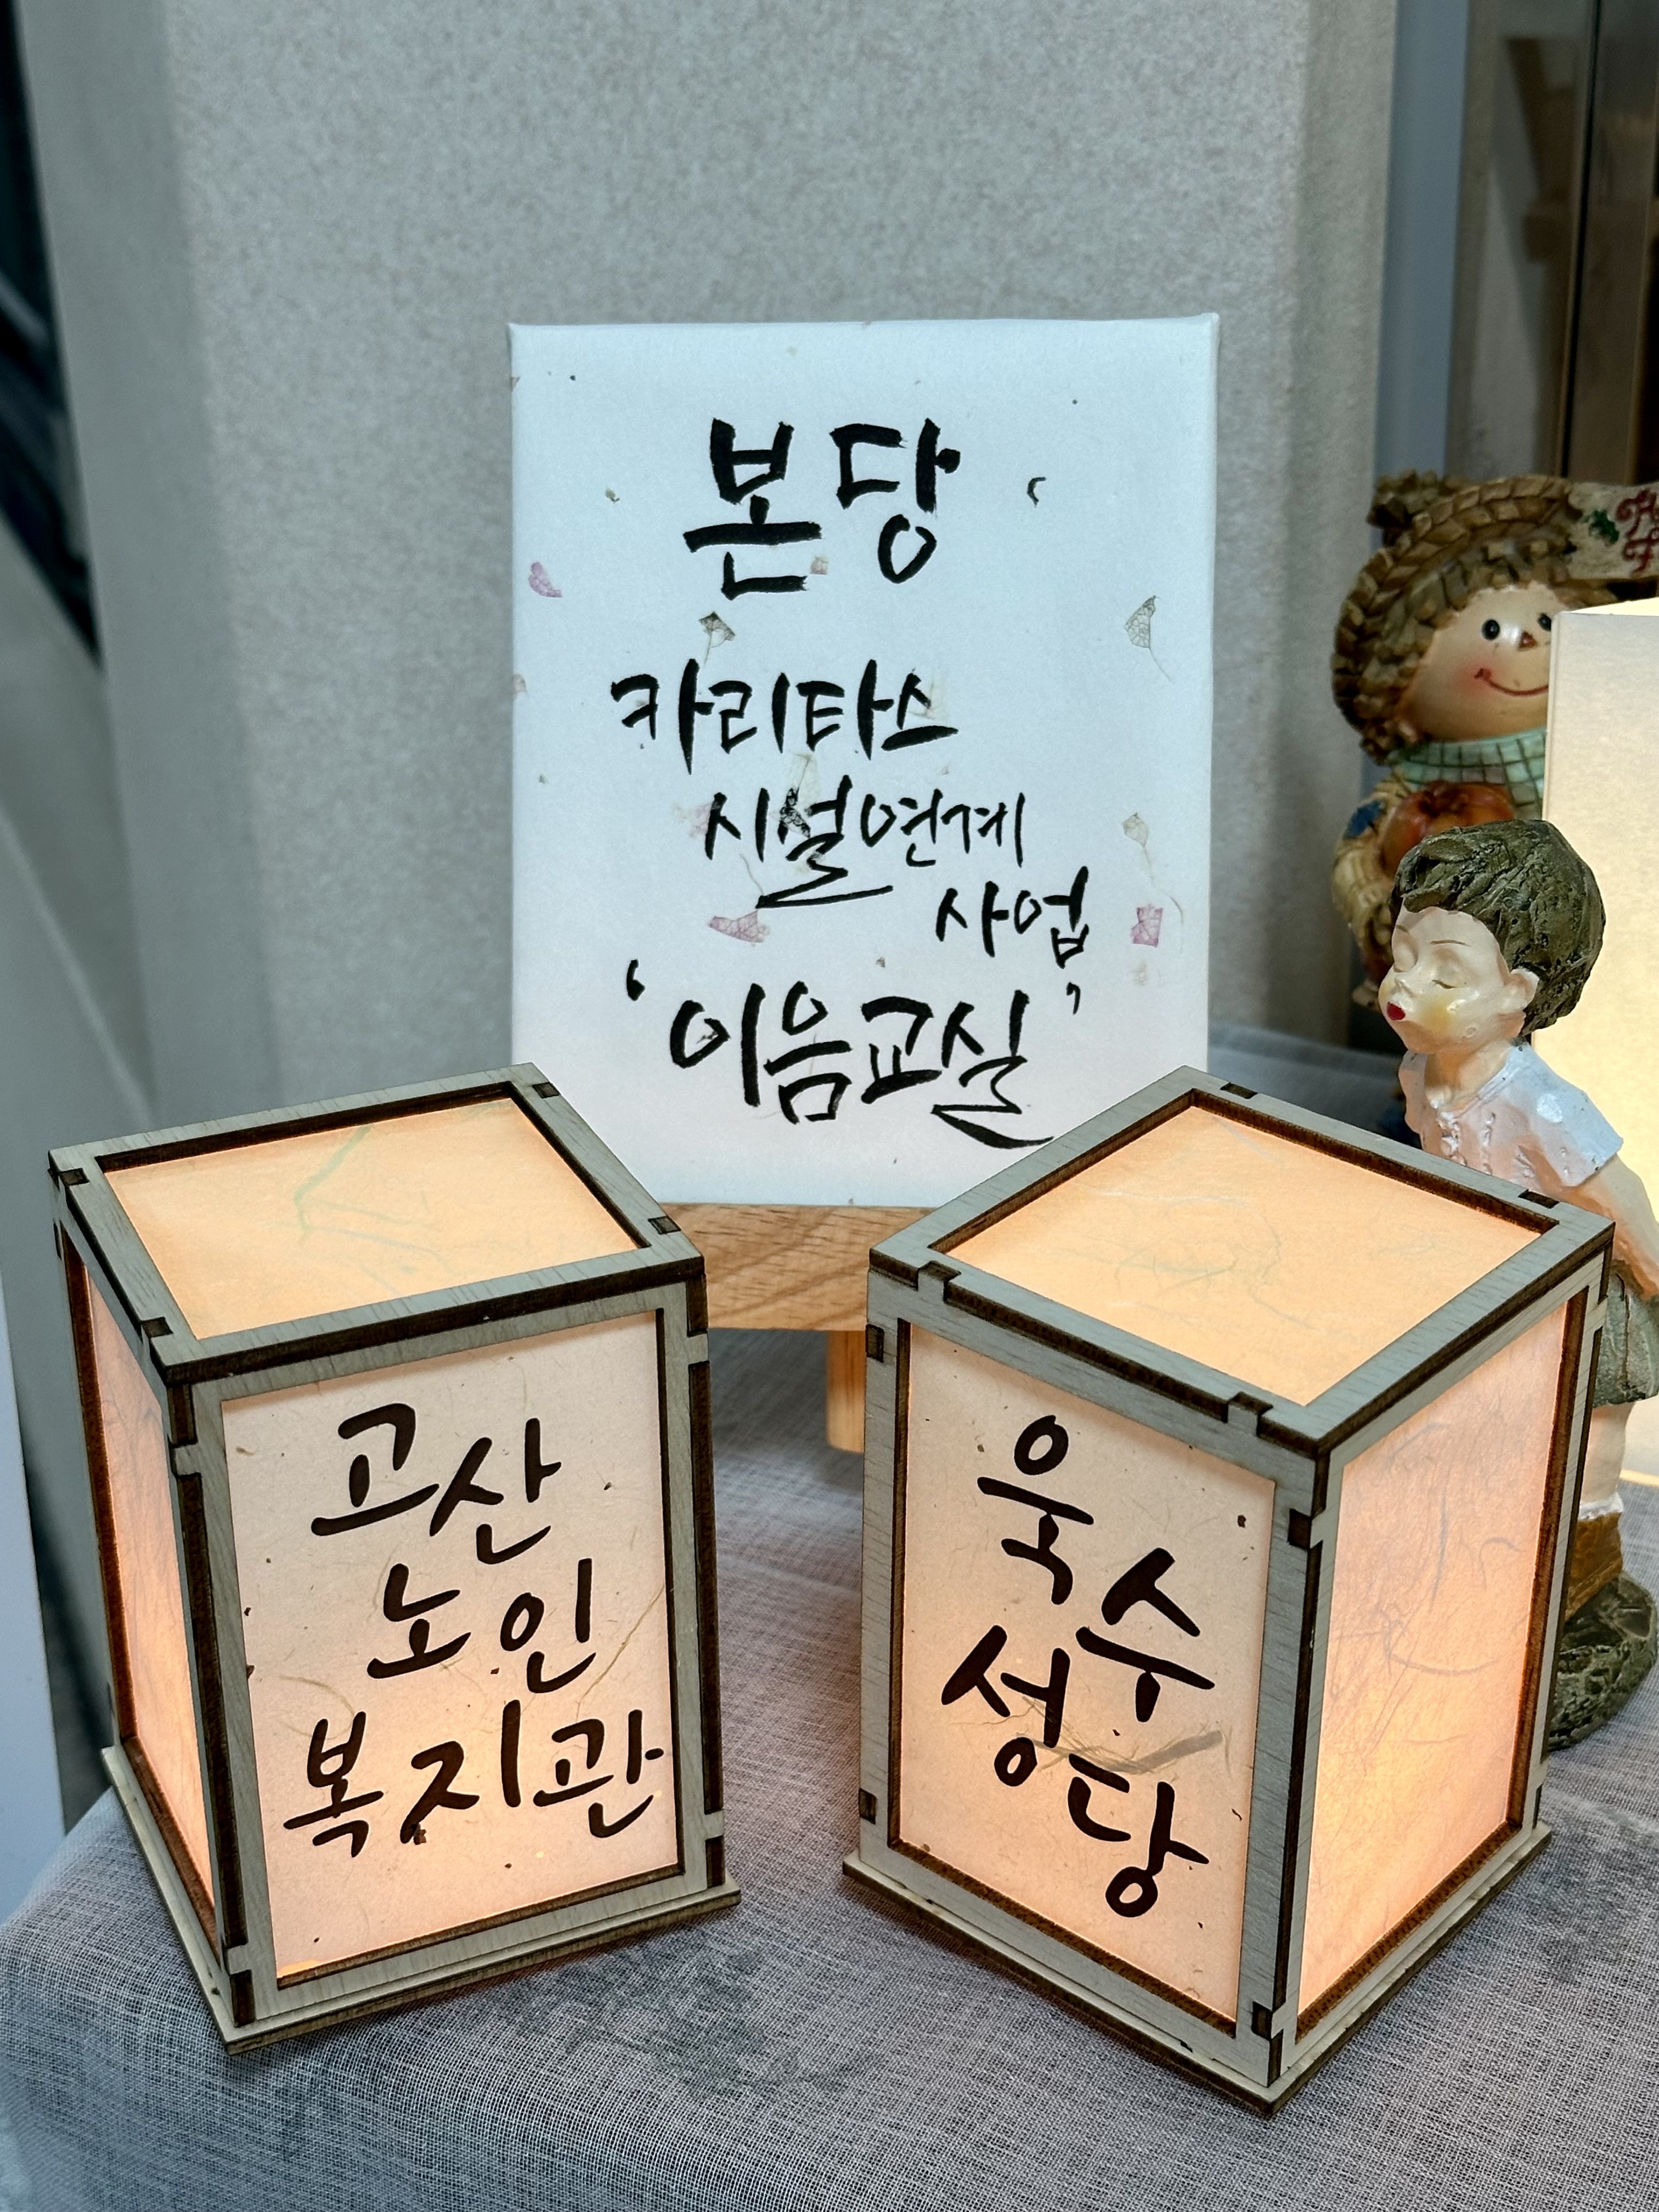 본당
카리타스
시설연계
사업
'이음교실'
고산
노인
복지관
욱수
성당